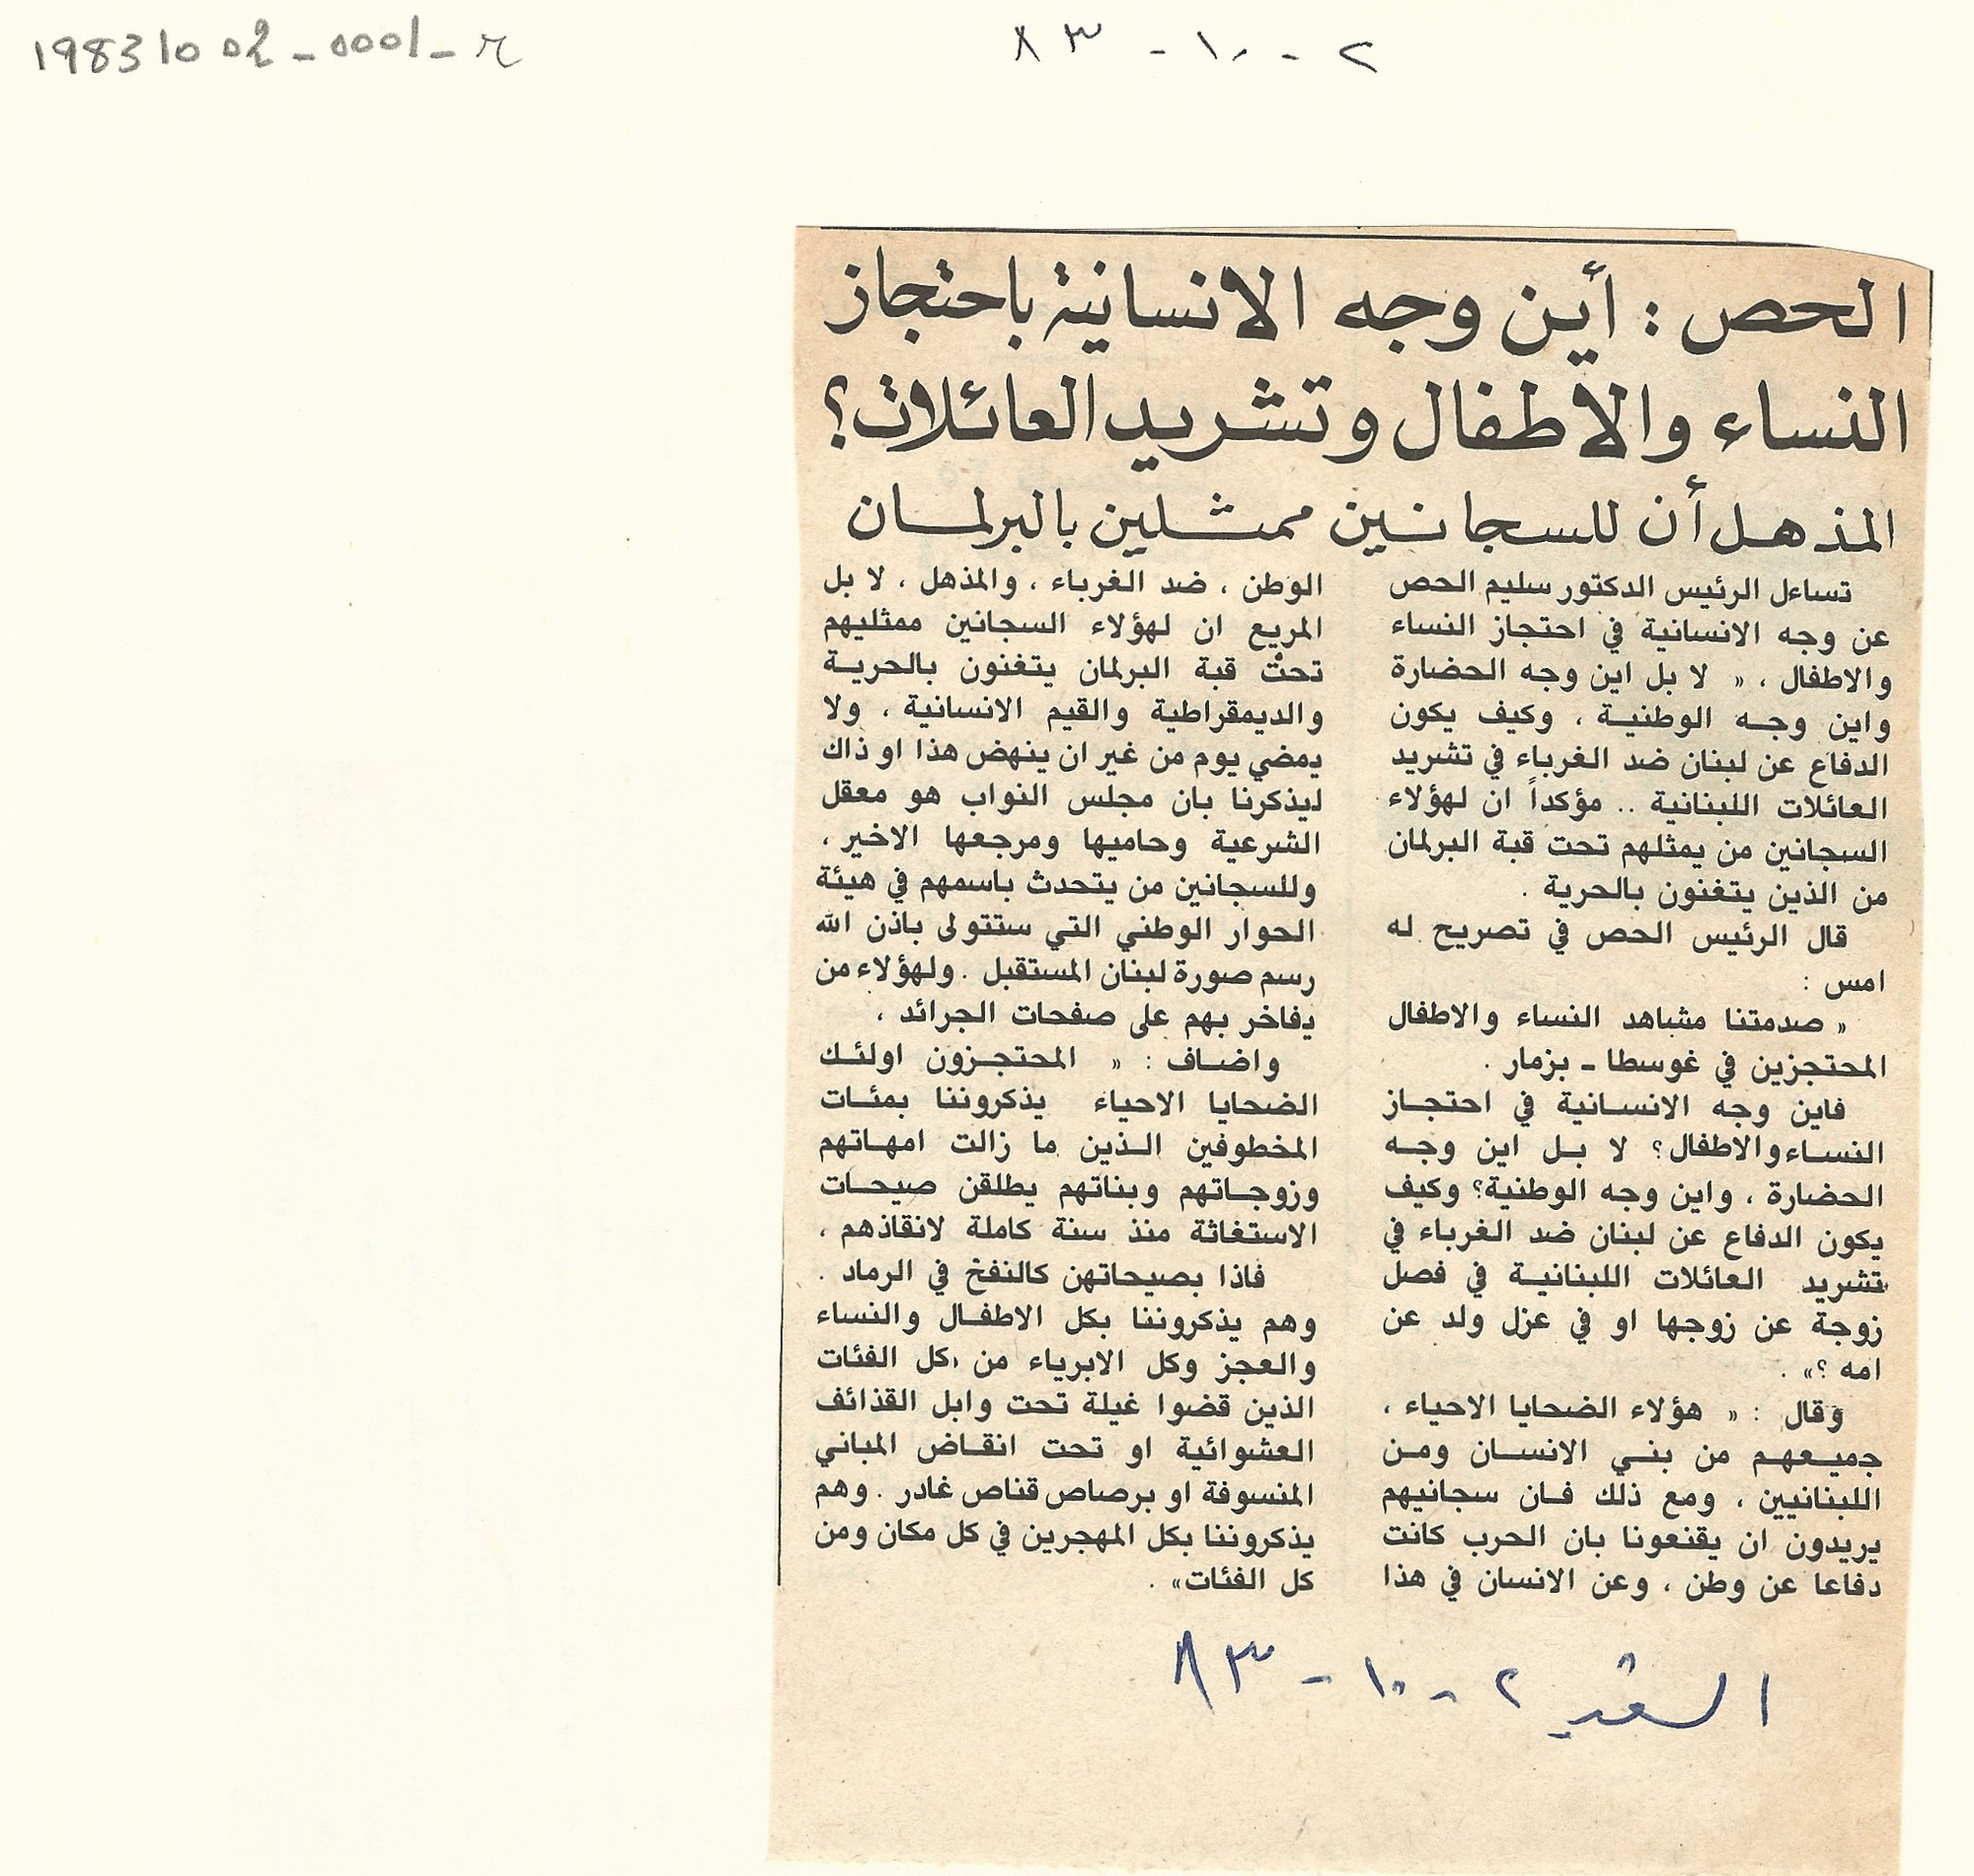 19831002_0001_م
٢ - ١٠ - ٨٣
الحص : أين وجه الانسانية باحتجاز
النساء والاطفال وتشريد العائلات؟
المذهل أن للسجانين ممثلين بالبرلمان
تساءل الرئيس الدكتور سليم الحص
عن وجه الانسانية في احتجاز النساء
والاطفال ، « لا بل اين وجه الحضارة
واين وجه الوطنية ، وكيف يكون
الدفاع عن لبنان ضد الغرباء في تشريد
العائلات اللبنانية .. مؤكداً ان لهؤلاء
السجانين من يمثلهم تحت قبة البرلمان
من الذين يتغنون بالحرية .
قال الرئيس الحص في تصريح له
امس :
« صدمتنا مشاهد النساء والاطفال
المحتجزين في غوسطا - بزمار .
فاين وجه الانسانية في احتجاز
النساء والاطفال؟ لا بل اين وجه
الحضارة ، واين وجه الوطنية؟ وكيف
يكون الدفاع عن لبنان ضد الغرباء في
تشريد العائلات اللبنانية في فصل
زوجة عن زوجها او في عزل ولد عن
امه ؟» .
وقال : « هؤلاء الضحايا الاحياء ،
جميعهم من بني الانسان ومن
اللبنانيين ، ومع ذلك فان سجانيهم
يريدون ان يقنعونا بان الحرب كانت
دفاعا عن وطن ، وعن الانسان في هذا
الوطن ، ضد الغرباء ، والمذهل ، لا بل
المريع ان لهؤلاء السجانين ممثليهم
تحت قبة البرلمان يتغنون بالحرية
والديمقراطية والقيم الانسانية ، ولا
يمضي يوم من غير ان ينهض هذا او ذاك
ليذكرنا بان مجلس النواب هو معقل
الشرعية وحاميها ومرجعها الاخير ،
وللسجانين من يتحدث باسمهم في هيئة
الحوار الوطني التي ستتولى باذن الله
رسم صورة لبنان المستقبل . ولهؤلاء من
يفاخر بهم على صفحات الجرائد ،
واضاف : « المحتجزون اولئك
الضحايا الاحياء يذكروننا بمئات
المخطوفين الذين ما زالت امهاتهم
وزوجاتهم وبناتهم يطلقن صيحات
الاستغاثة منذ سنة كاملة لانقاذهم ،
فاذا بصيحاتهن كالنفخ في الرماد .
وهم يذكروننا بكل الاطفال والنساء
والعجز وكل الابرياء من كل الفئات
الذين قضوا غيلة تحت وابل القذائف
العشوائية او تحت انقاض المباني
المنسوفة او برصاص قناص غادر . وهم
يذكروننا بكل المهجرين في كل مكان ومن
كل الفئات» .
السفير ٢ - ١٠ - ٨٣